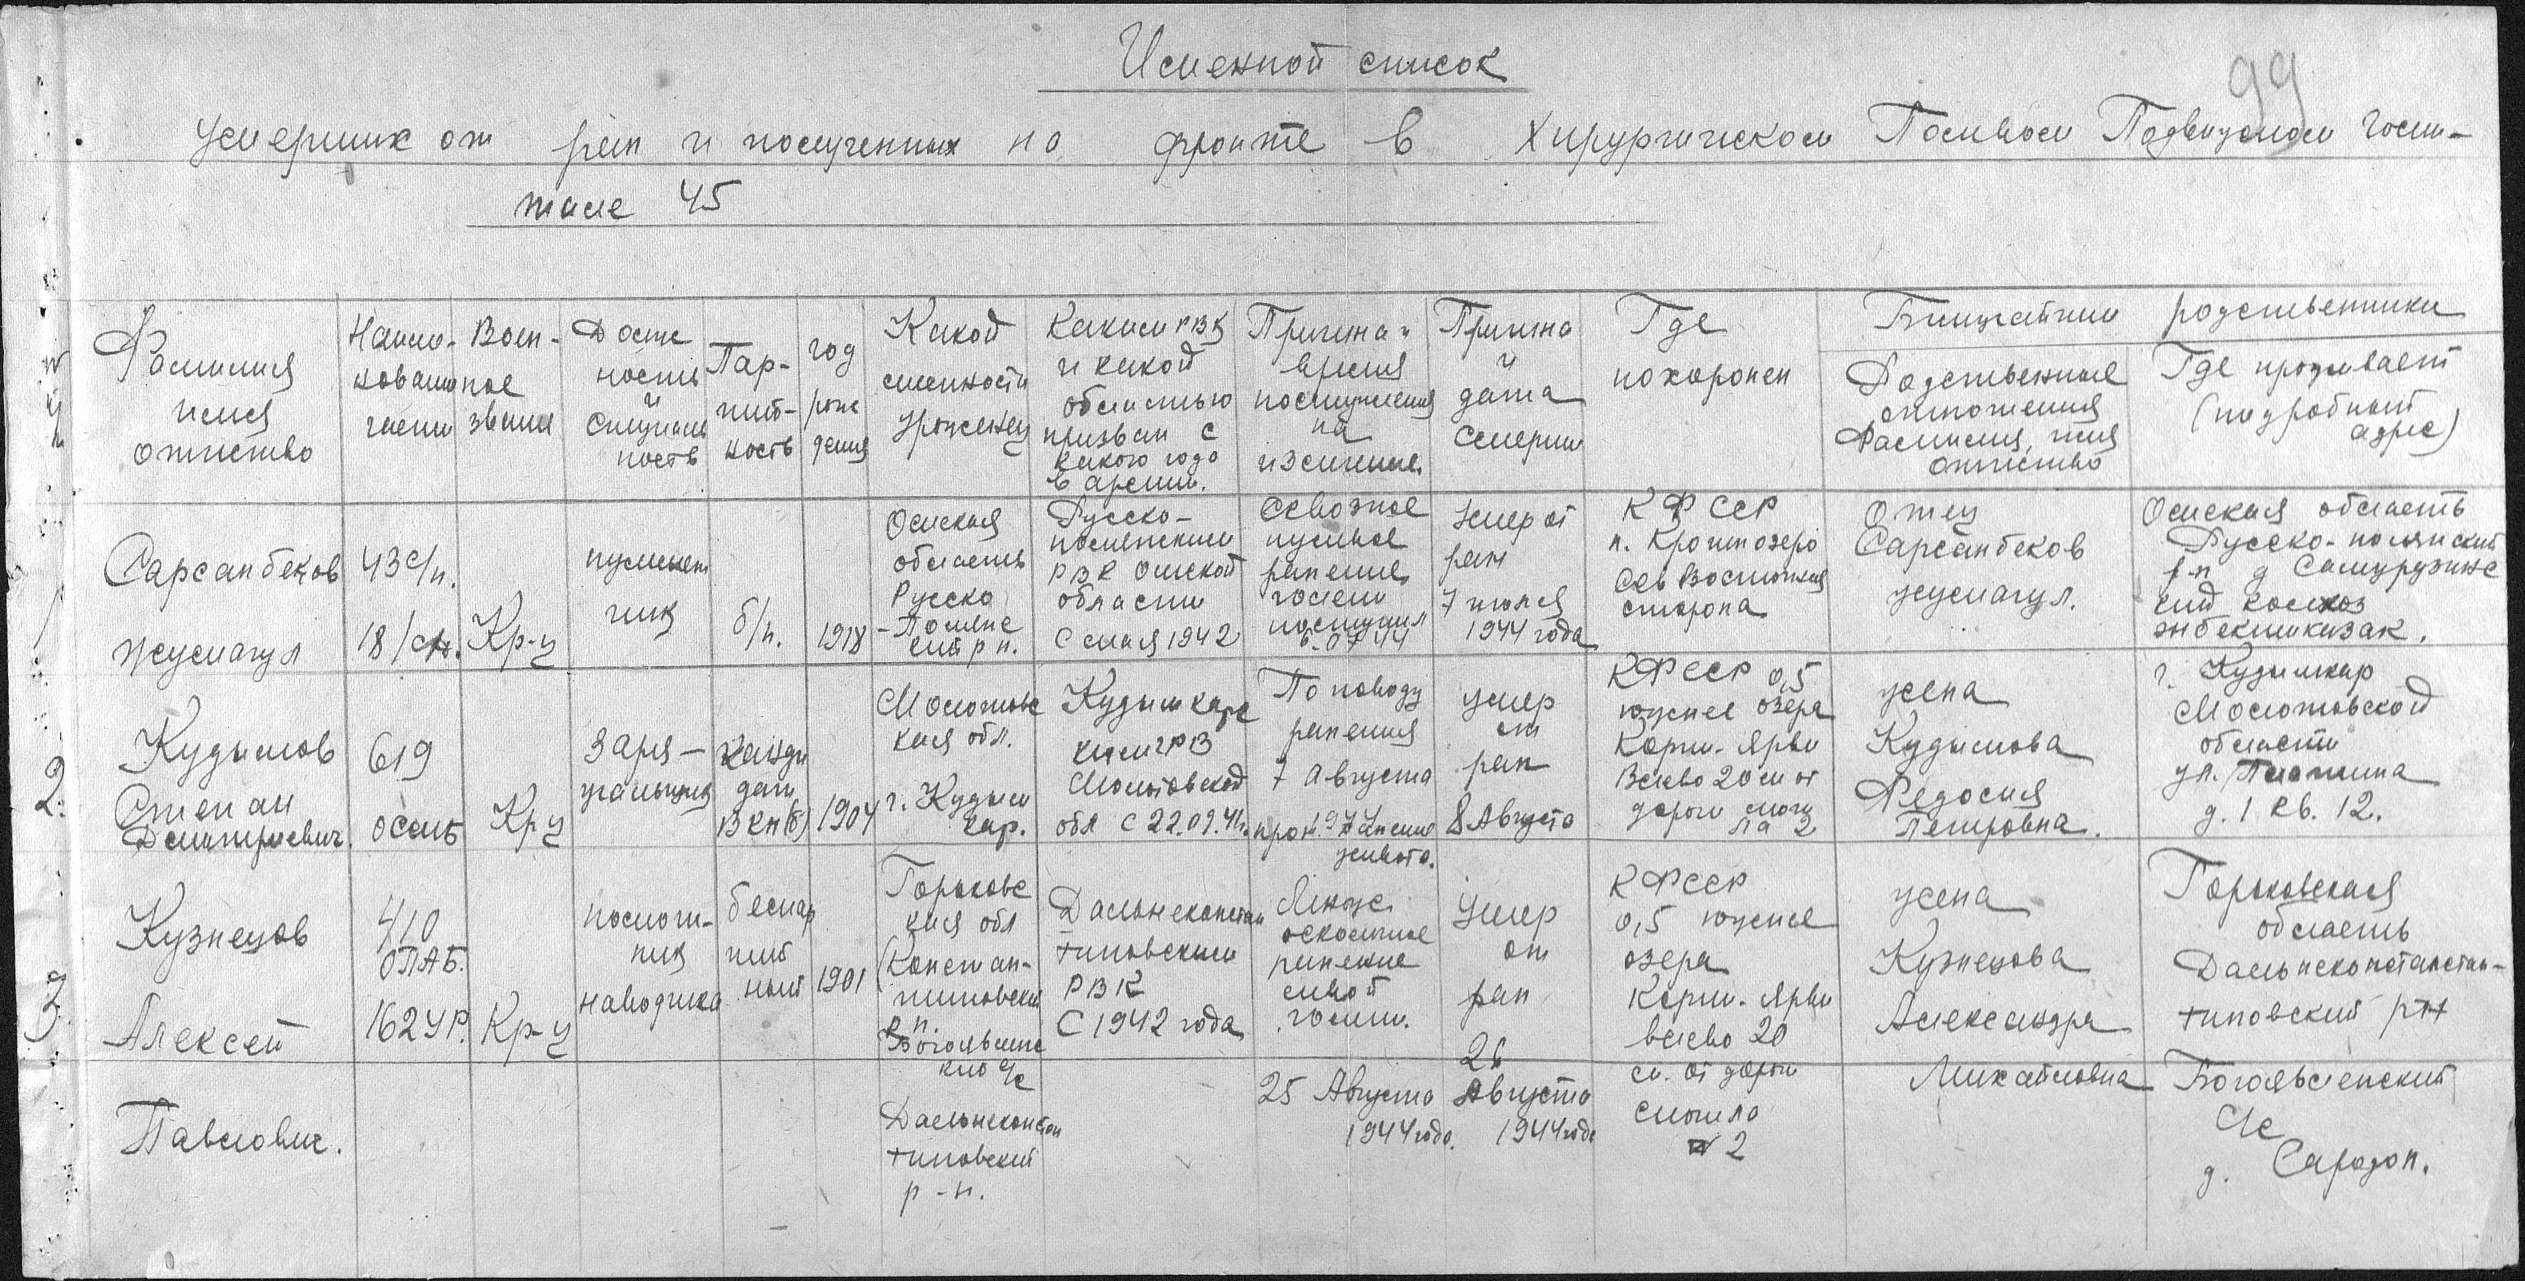 Именной список
99
умерших от ран и полученных на фронте в Хирургическом Полевом Подвижном Госпи-
тале 45
Фамилия имя отчество
Наиме-нование части
Воен-ное звание
Долж ность и специаль ность
Пар-тий-ность
год рож дения
Какой местности урожен​ец
Каким РВК и какой областью призван с какого года в армии.
Причина и время поступления на излечение
Причина и дата смерти
Где похоронен
Ближайшии родственники
Родственные отношения Фамилия, имя отчество
Где проживает (подробный адрес)
1
Сарсанбеков жусмагул
43 с/п. 18/сд.
Кр-ц
пулемет чик
б/п.
1918
Омская область Русско -Полянс кий р н.
Русско-полянским РВК Омской области С мая 1942
Сквозное пулевое ранение голени поступил 6.07 44
Умер от ран 7 июля 1944 года
КФССР п. Кроштозеро Сев Восточная сторона
Отец Сарсанбеков жусмагул.
Омская область Русско-полянский р-н д колхоз энбекшиказак.
2.
Кудымов Степан Дмитриевич.
619 осапб
Кр ц
Заря-жальщик
канди дат ВКП(б)
1904
Молотовс кая обл. г. Кудым кар.
Кудымкарс ким ГРВ Молотовской обл С 22.09.41г.
По поводу ранения 7 Августа 1944 прон. ранение живота.
умер от ран 8 Августа
КФССР 0,5 южнее озера Корпи-Ярви Влево 20 м от дороги моги ла 2
жена Кудымова Федосия Петровна.
г. Кудымкар Молотовской области ул. д. 1 кв. 12.
3
Кузнецов Алексей Павлович.
410 ОПАБ. 162 УР.
Кр-ц
помощ-ник наводчика
беспар тий ный
1901
Горьковс кая обл (Констан-тиновский р н. Богоявленс кио с/с Дальнеконстан тиновский р-н.
Дальнеконстан тиновским РВК С 1942 года
осколочное ранение левой голени. 25 Августа 1944 года.
Умер от ран 26 Августа 1944 года
КФССР 0,5 южнее озера Корпи-Ярви влево 20 м. от дороги могила № 2
жена Кузнецова Александра Михайловна
Горьковская область Дальнеконстанстан-тиновский р-н Богоявленский С/с д. Сарадон.